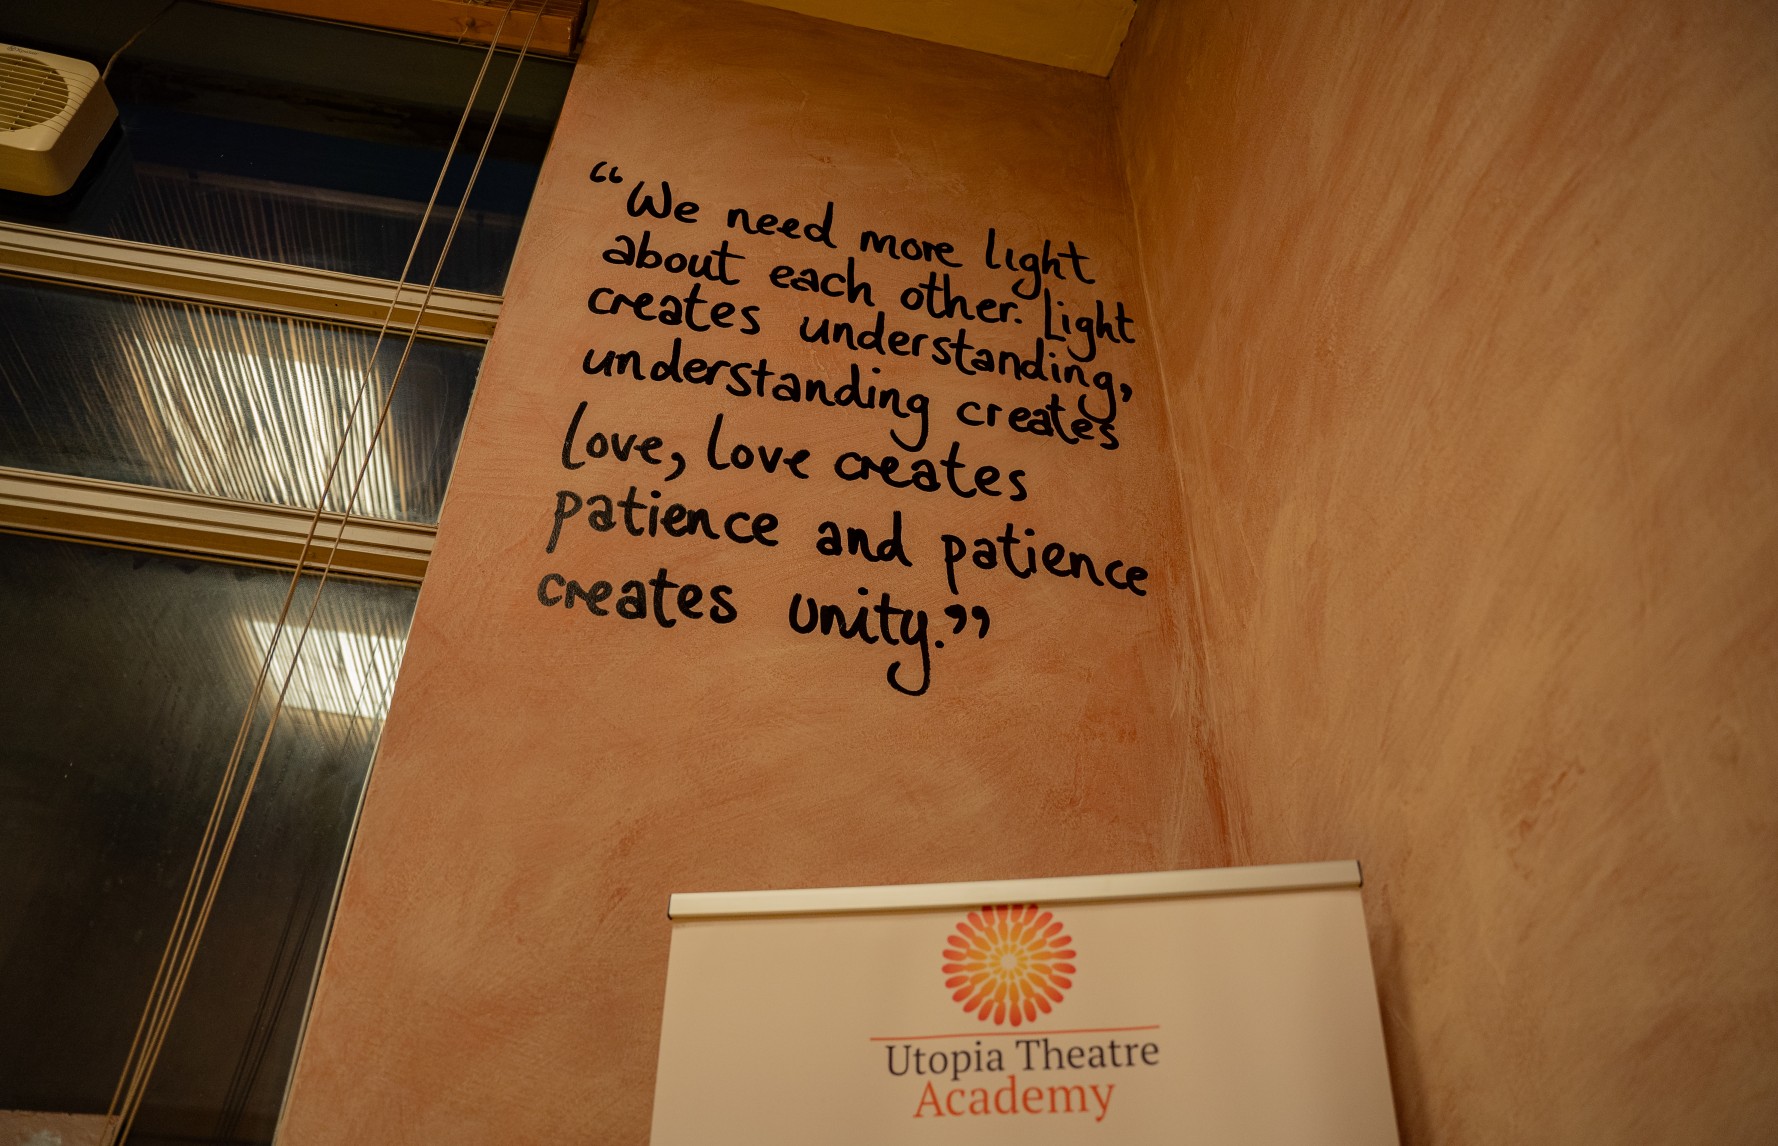 “We need more light
about each other. Light
creates understanding,
understanding creates
love, love creates
patience and patience
creates unity.”
Utopia Theatre
Academy